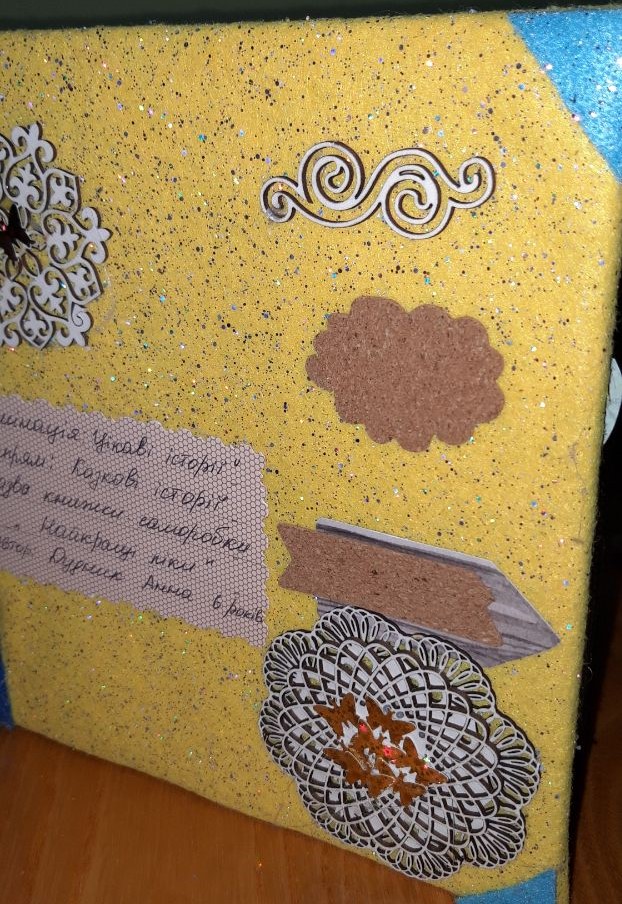 інація Цікаві історії"
прям: Казкові історії
азва книжки саморобки
Найкращі ліки"
втор: Дудник Анна 6 років